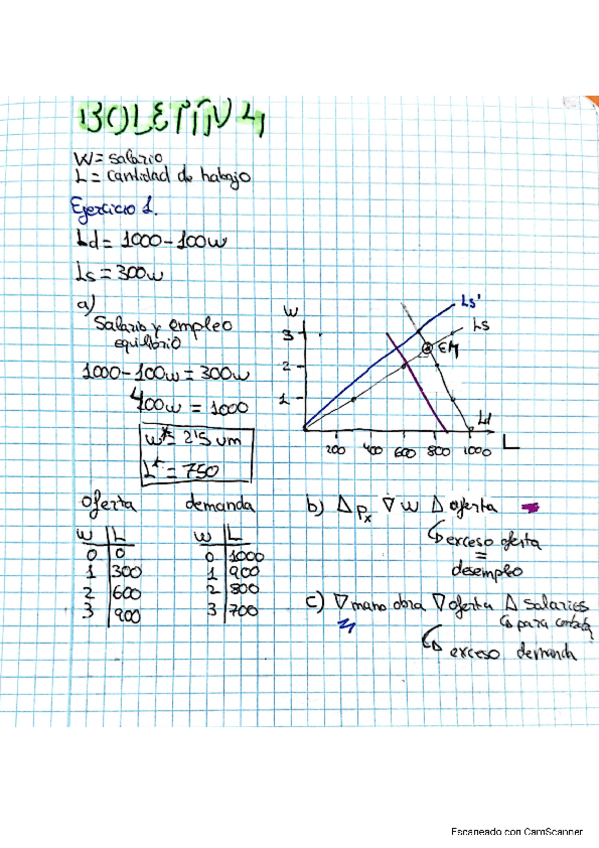 BOLETÍN 4
W = salario
L = cantidad de trabajo
Ejercicio 1.
Ld = 1000 - 100w
Ls = 300w
a)
Salario y empleo
equilibrio
1000 - 100w = 300w
400w = 1000
w* = 2'5 um
L* = 750
oferta demanda
w L w L
0 0 0 1000
1 300 1 900
2 600 2 800
3 900 3 700
W
3
2
1
200 400 600 800 1000
L
Ls'
Ls
EM
Ld
b) Δ Px ∇ w Δ oferta
↳ exceso oferta
=
desempleo
c) ∇ mano obra ∇ oferta Δ salarios
↳ para contratar
↳ exceso demanda
Escaneado con CamScanner